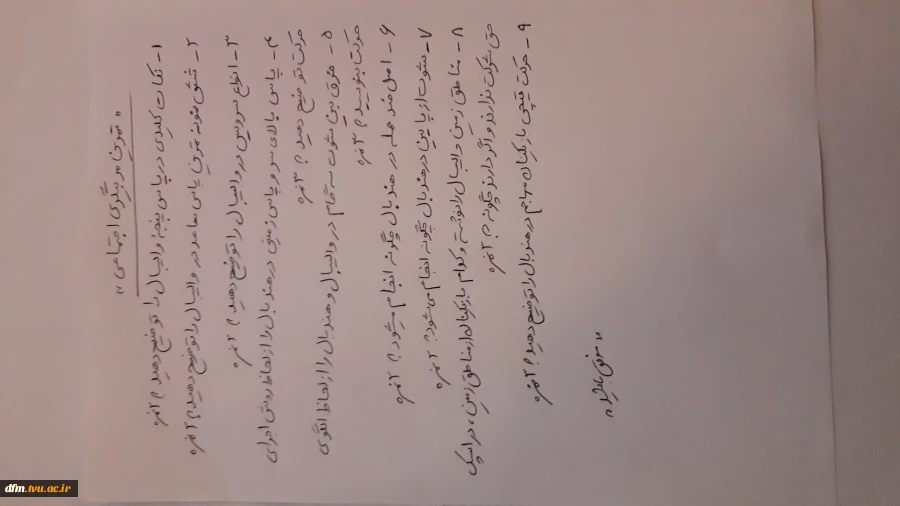 « تمرین مربیگری اجتماعی »
۱- نکات کلیدی در پاس پنجه والیبال را توضیح دهید؟ ۲ نمره
۲- شش نمونه تمرین پاس ساعد در والیبال را توضیح دهید؟ ۲ نمره
۳- انواع سرویس در والیبال را توضیح دهید؟ ۲ نمره
۴- پاس بالای سر و پاس زمینی در هندبال را از لحاظ روش اجرای
حرکت توضیح دهید؟ ۳ نمره
۵- فرق بین شوت سه گام در والیبال و هندبال را از لحاظ الگوی
حرکت بنویسید؟ ۳ نمره
۶- اصل ضد حمله در هندبال چگونه انجام میشود؟ ۲ نمره
۷- شوت از پایین در هندبال چگونه انجام می‌شود؟ ۲ نمره
۸- مناطق زمین والیبال را نوشته و کدام بازیکنان از مناطق زمین، در اسپک
حق شرکت ندارند و اگر دارند چگونه؟ ۲ نمره
۹- حرکت قیچی بازیکنان مهاجم در هندبال را توضیح دهید؟ ۲ نمره
« موفق باشید »
dfm.tvu.ac.ir